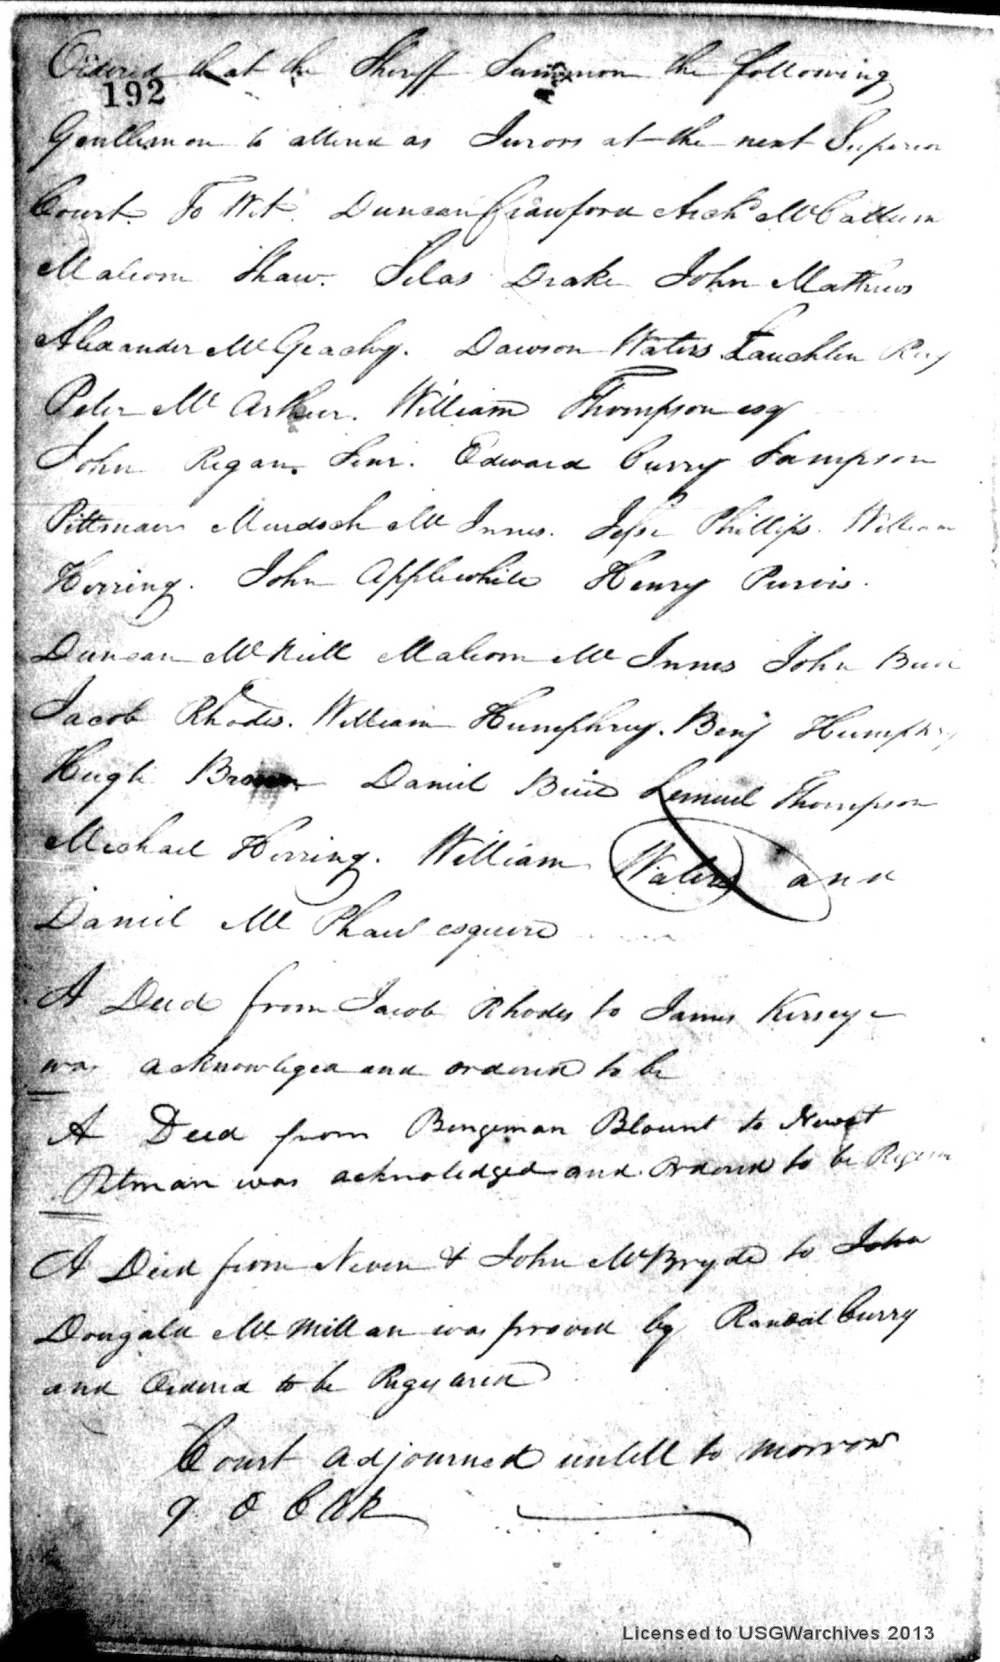 Ordered that the Sheriff Summon the following
192
Gentlemen to attend as Jurors at the next Superior
Court. To Wit. Duncan Crawford Archd McCallum
Malcom Shaw. Silas Drake John Mathews
Alexander McGeachy. Dawson Waters Lauchlin Ray
Peter McArthur. William Thompson esqr
John Regan Senr. Edward Curry Sampson
Pittman Murdoch McInnis. Jesse Phillips. William
Herring. John Applewhite Henry Purvis.
Duncan McNeill Malcom McInnis John
Jacob Rhodes. William Humphrey. Benj Humphrey
Hugh Brown Daniel Buie Lemuel Thompson
Michael Herring. William Waters and
Daniel McPhaul esquire
A Deed from Jacob Rhodes to James Kersey
was acknowleged and ordered to be
A Deed from Bengeman Blount to
Pitman was acknoledged and Ordered to be
A Deed from Neven & John McBryde to John
Dougald McMillan was proved by Randal Curry
and Ordered to be
Court adjourned untill to morrow
9 O Clk
Licensed to USGWarchives 2013